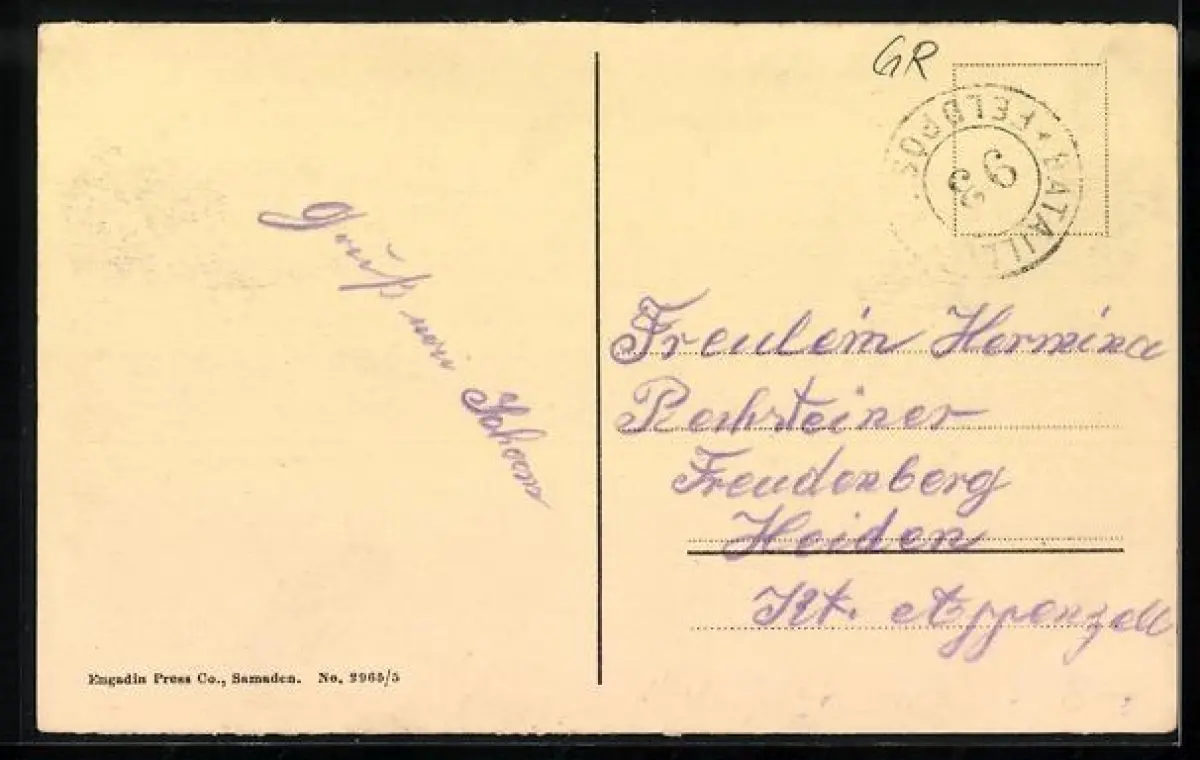 GR
FELDPOS BATAILL
Gruß von
Freulein Hermina
Rechsteiner
Freudenberg
Heiden
Kt. Appenzell
Engadin Press Co., Samaden. No. 2965/5